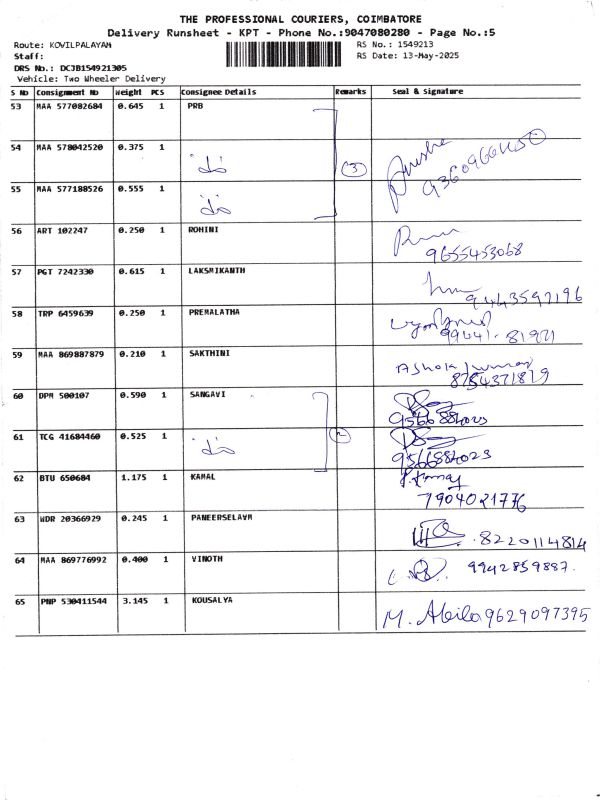 THE PROFESSIONAL COURIERS, COIMBATORE
Delivery Runsheet - KPT - Phone No.:9047080280 - Page No.:5
Route: KOVILPALAYAM RS No.: 1549213
Staff: RS Date: 13-May-2025
DRS No.: DCJB154921305
Vehicle: Two Wheeler Delivery
S No Consignment No Weight PCS Consignee Details Remarks Seal & Signature
53 MAA 577082684 0.645 1 PRB
54 MAA 578042520 0.375 1 3
55 MAA 577188526 0.555 1
56 ART 102247 0.250 1 ROHINI
9655453068
57 PGT 7242330 0.615 1 LAKSMIKANTH
9443597196
58 TRP 6459639 0.250 1 PREMALATHA
59 MAA 869887879 0.210 1 SAKTHINI
Ashok kumar
8754371819
60 DPM 500107 0.590 1 SANGAVI
9566884023
61 TCG 41684460 0.525 1 2
9566884023
62 BTU 650684 1.175 1 KAMAL
7904021776
63 WDR 20366929 0.245 1 PANEERSELAVM
8220114814
64 MAA 869776992 0.400 1 VINOTH 9942859887.
65 PNP 530411544 3.145 1 KOUSALYA
M. Abila 9629097395